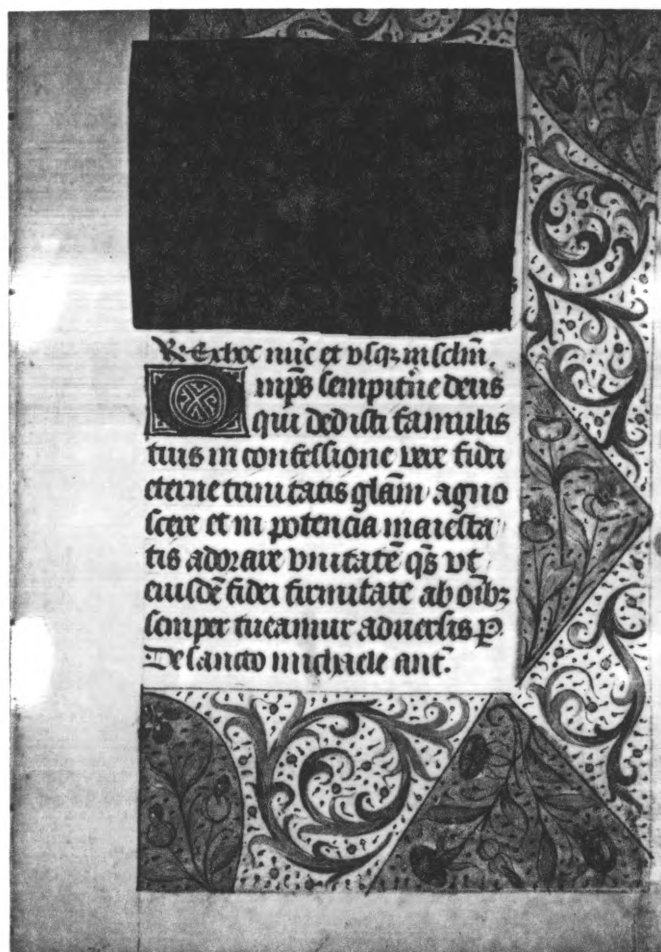 R. Ex hoc nūc et vsq; in sclm̄.
Omp̄s sempitn̄e deus
qui dedisti famulis
tuis in confessione vere fidei
eterne trinitatis glām agno
scere et in potencia maiesta
tis adorare vnitatē qs̄ vt
eiusdē fidei firmitate ab oīb;
semper tueamur aduersis P.
De sancto michaele ant.